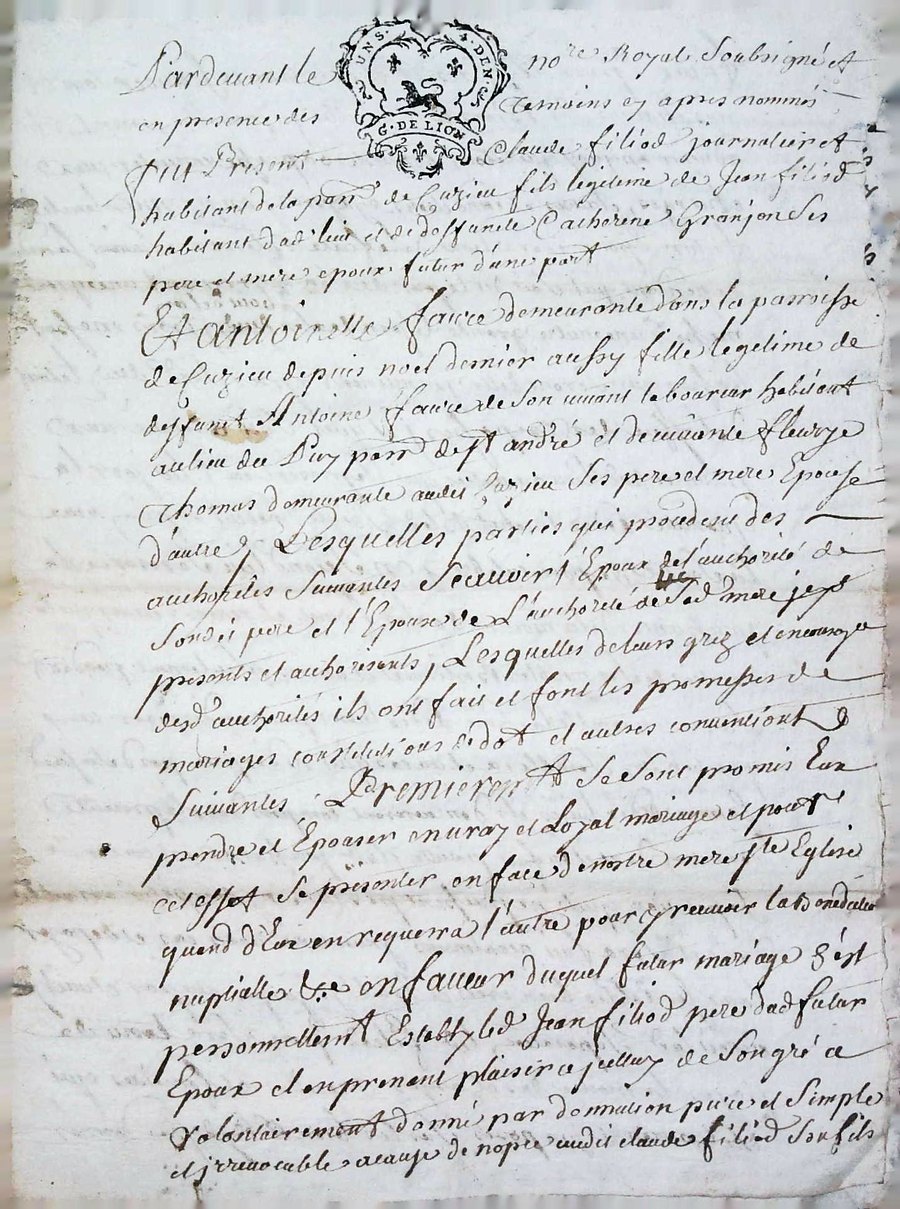 UNS. 4. DEN.
G. DE LION
Pardevant le no.re Royal Soubsigné et
en presence des temoins cy apres nommés
fut Present Claude filiod journalier et
habitant de la parr. de Cuzieu fils legitime de Jean filiod
habitant dud. lieu et de deffuncte Catherene Granjon Ses
pere et mere epoux futur d'une part
Et antoinette faure demeurante dans la parroisse
de Cuzieu depuis noel dernier aussy fille legitime de
deffunct Antoine faure de Son vivant laboureur habitant
au lieu du Puy parr. de st andre et de vivante fleurye
Thomas demeurante audit Cuzieu Ses pere et mere Epouse
d'autre, Lesquelles parties qui procedent des
authorités Suivantes Scauoir l'Epoux de l'authorité de
Sondit pere et l'Epouse de L'authorité de Sad. mere jcy
presents et authorisants, Lesquelles de leurs grez et
desd. authorités ils ont fait et font les promesses de
mariages constitutions de dot et autres conventions
Suivantes Premierem.t Se Sont promis Eux
prendre et Epouser en vray et Loyal mariage et pour
cet effet Se présenter en face de nostre mere s.te Eglise
quand d'Eux en requerra l'autre pour y recevoir la Benediction
nuptialle &.e en faveur duquel futur mariage S'est
personnellem.t Estably led. Jean filiod pere dud. futur
Epoux et en prenant plaisir a jcelluy de Son gré a
volontairement donné par donnation pure et Simple
et jrrevocable a cause de nopce audit claude filiod Son fils